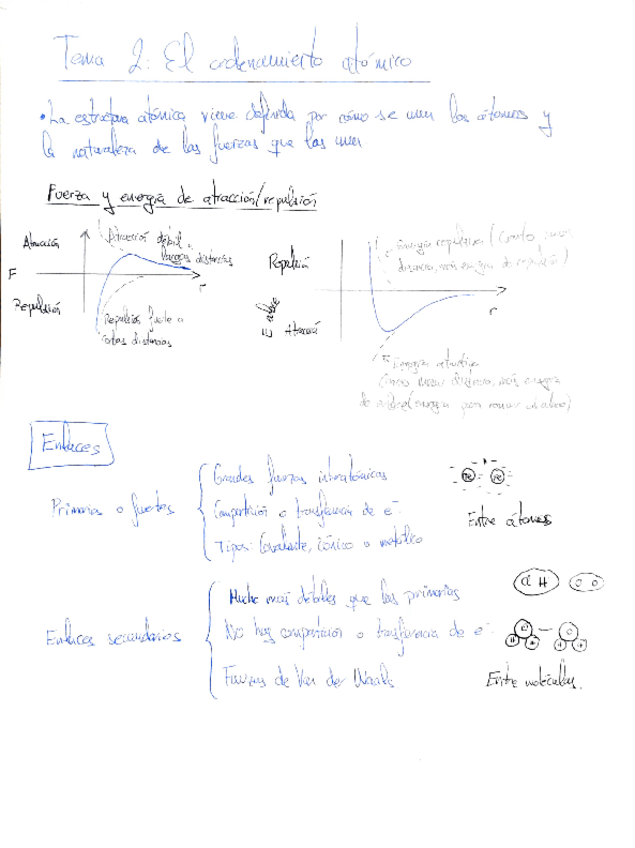 Tema 2: El ordenamiento atómico
• La estructura atómica viene definida por cómo se unen los átomos y
la naturaleza de las fuerzas que los unen
Fuerza y energía de atracción/repulsión
Atracción
F
Repulsión
Atracción débil a
largas distancias
r
Repulsión fuerte a
cortas distancias
Repulsión
Atracción
Energía repulsión (cuanto menos
distancia, más energía de repulsión)
r
Energía atractiva
Enlaces
Primarios o fuertes
Grandes fuerzas interatómicas
Compartición o transferencia de e-
Tipos: Covalente, iónico o metálico
Fe Fe
Entre átomos
Enlaces secundarios
Mucho más débiles que los primarios
No hay compartición o transferencia de e-
Fuerzas de Van der Waals
Cl H O O
O O
H H H H
Entre moléculas.